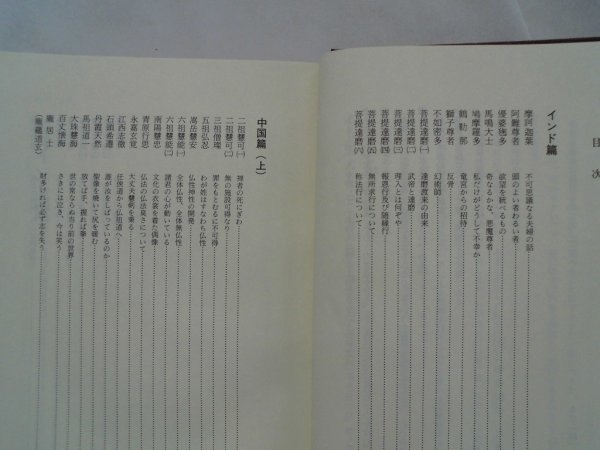 目次
インド篇
摩訶迦葉 不可思議なる夫婦の話
阿難尊者 頭のよい者わるい者
優婆毱多 欲望を統べるもの
馬鳴大士 奇なるかなべ、悪魔尊者
鳩摩羅多 私だけがどうして不幸か
鶴勒那 竜宮からの招待
獅子尊者 反骨
不如密多 幻術師
菩提達磨(一) 達磨渡来の由来
菩提達磨(二) 武帝と達磨
菩提達磨(三) 理入とは何ぞや
菩提達磨(四) 報恩行及び随縁行
菩提達磨(五) 無所求行について
菩提達磨(六) 称法行について
中国篇(上)
二祖慧可(一) 理者の死にざま
二祖慧可(二) 無の施設可得なり
三祖僧璨 罪をもとむるに不可得
五祖弘忍 わが姓はすなわち仏性
嵩岳慧安 仏性神性の開発
六祖慧能(一) 全体仏性、全体無仏性
六祖慧能(二) 諸君の心が動いている
南陽慧忠 文化の衣裳を着た偶像
青原行思 仏法の仏法臭さについて
永嘉玄覚 大丈夫慧剣を乗る
江西志徹 任侠道から仏祖道へ
石頭希遷 誰が汝をしばっているのか
丹霞天然 聖像を焼いて尻を暖む
馬祖道一 放てば手、握れば拳
大珠慧海 世の常ならぬ当り前の世界
百丈懐海 さきには泣き、今は笑う
龐居士 財多ければ必ず志を失う
(龐蘊道玄)